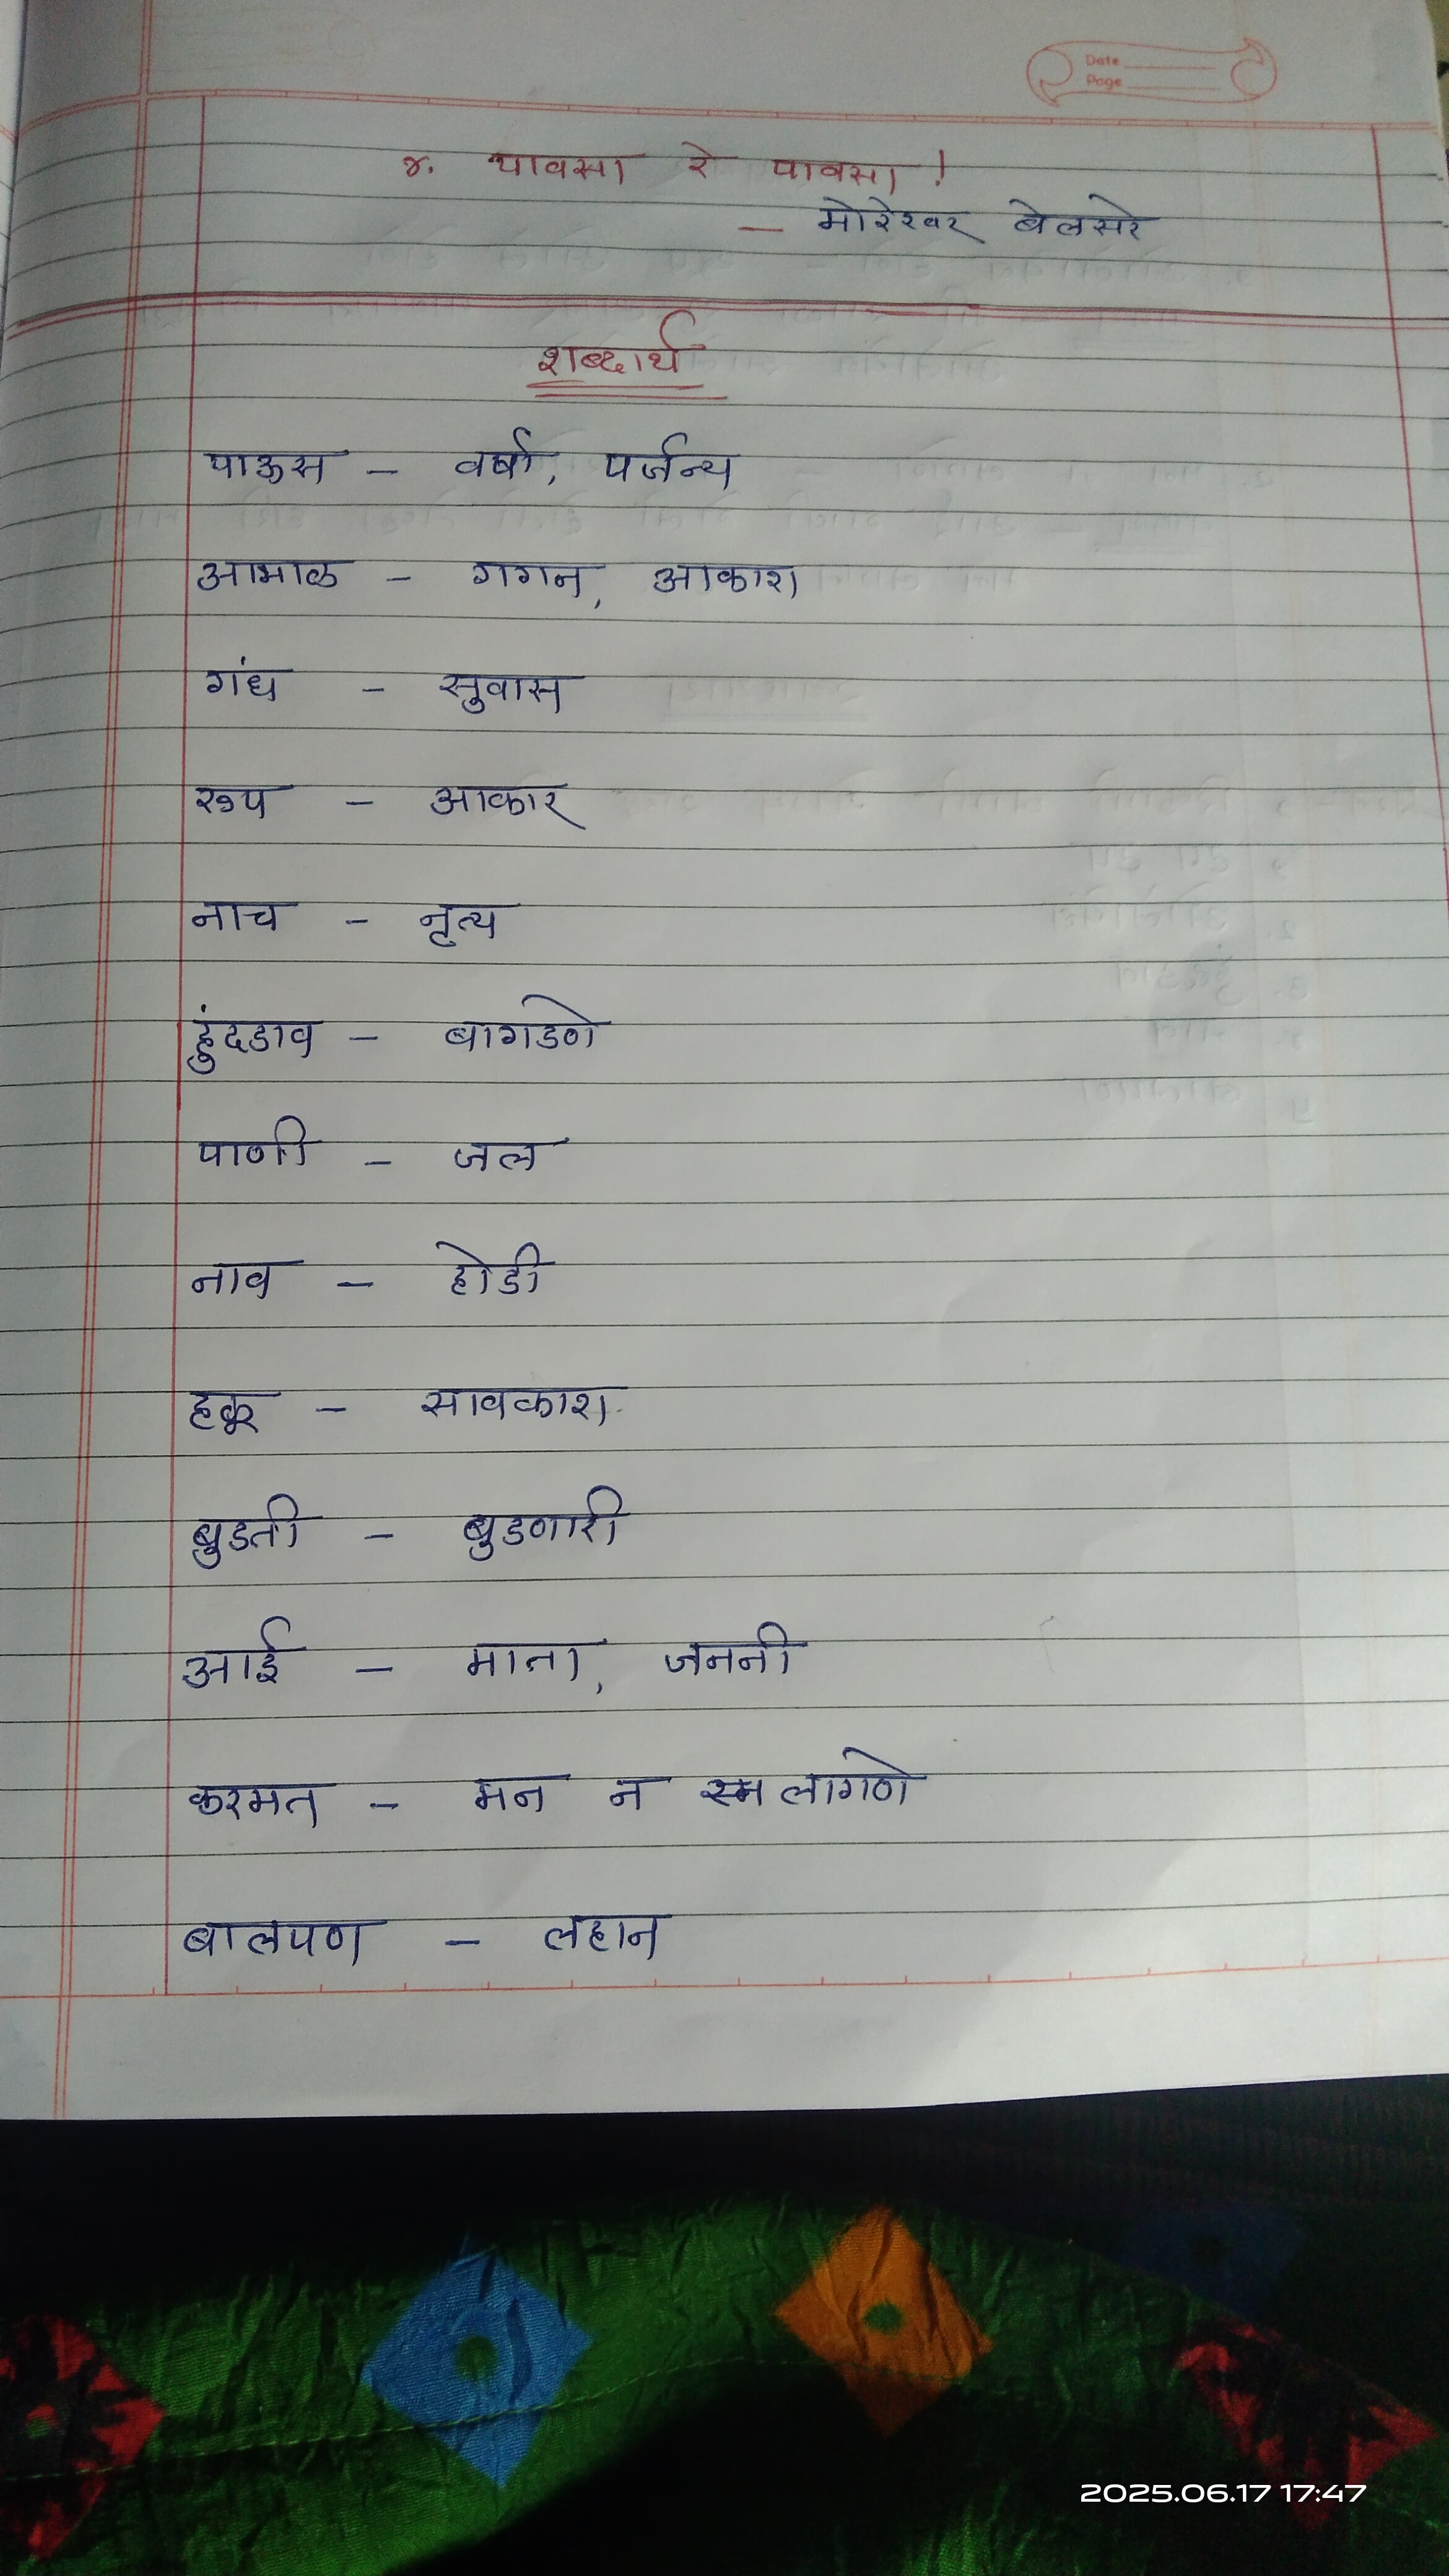 Date
Page
४. पावसा रे पावसा !
— मोरेश्वर बेलसरे
शब्दार्थ
पाऊस - वर्षा, पर्जन्य
आभाळ - गगन, आकाश
गंध - सुवास
रूप - आकार
नाच - नृत्य
हुंदडाव - बागडणे
पाणी - जल
नाव - होडी
हळू - सावकाश
बुडती - बुडणारी
आई - माता, जननी
करमत - मन न लागणे
बालपण - लहान
2025.06.17 17:47